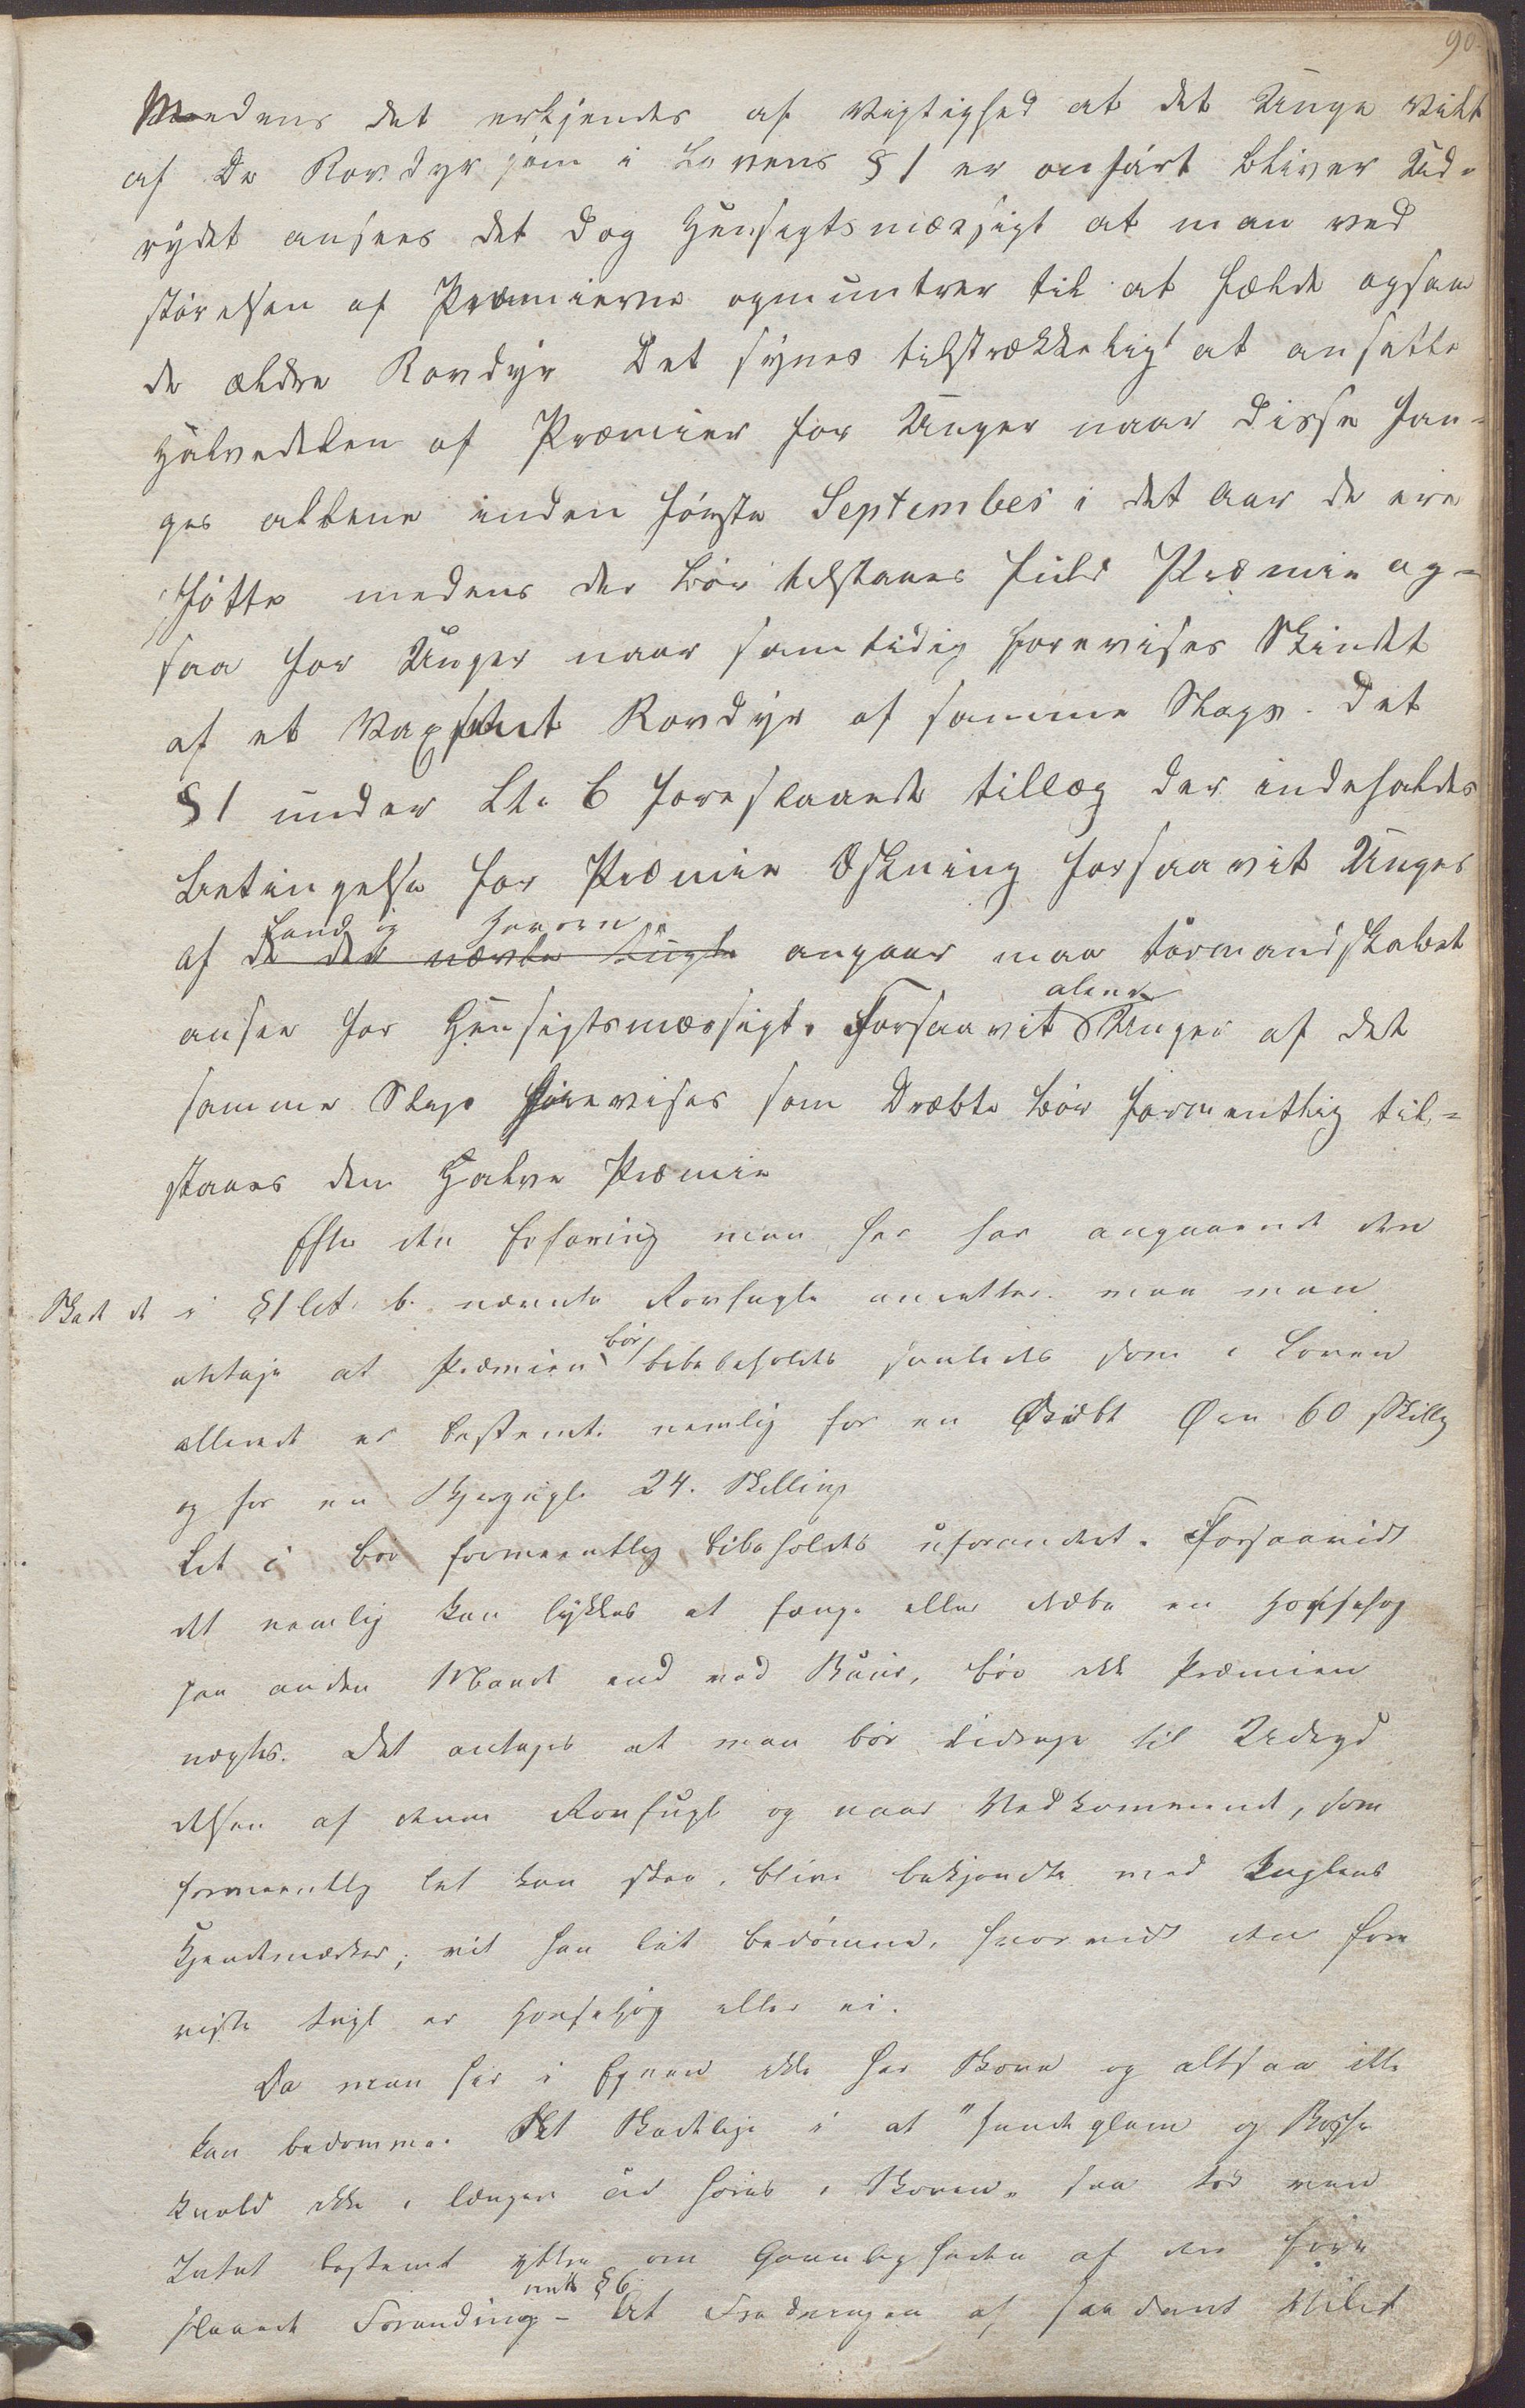 90.
Medens det erkjendes af Vigtighed at det Unge Vildt
af De Rovdyr som i Lovens § 1 er anført bliver Ud-
rydet ansees det dog Hensigtsmæssigt at man ved
størelsen af Præmierne opmuntrer til at fælde ogsaa
de ældre Rovdyr Det synes tilstrækkeligt at ansætte
Halvedelen af Præmier for Unger naar disse fan-
ges allene inden første September i det Aar de ere
fødte medens der bør tilstaaes fuld Præmie og-
saa for Unger naar samtidig forevises Skindet
af et Vaxent Rovdyr af samme Slags. Det
§ 1 under Lt. b foreslaaede tillæg der indeholder
betingelse for Præmie Øskning forsaavit Unger
Land ig Havørn
af de der nævte fugle angaar maa Formandskabet
ansee for Hensigtsmæssigt. Forsaavit alene Unger af det
samme Slags forevises som Dræbte bør formentlig til-
staaes den Halve Præmie
Efter den Erfaring man her har angaaende den
Skade de i § 1 lit. b. nævnte Rovfugle anretter maa man
antage at Præmien bør bibeholdes saaledes som i Loven
allerede er bestemt nemlig for en Dræbt Ørn 60 Skilling
og for en Bjergugle 24. Skilling
Lit c bør formeentlig bibeholdes uforandret. Forsaavidt
det nemlig kan lykkes at fange eller dræbe en Hønsehøg
paa anden Maade end ved Buur, bør ikke Præmien
nægtes. Det antages at man bør bidrage til Udryd
delsen af denne Rovfugl og naar Vedkommende, som
formeentlig let kan skee, blive bekjendte med Fuglens
Kjendemærker, vil han let bedømme, hvorvidt den fore
viste Fugl er Hønsehøg eller ei.
Da man her i Egnen ikke har Skove og altsaa ikke
kan bedømme Det Skadelige i at "Hundeglam og Bøsse
knald ikke i længere Tid høres i Skoven" saa tør man
Intet bestemt yttre om Gavnligheden af den fore
slaaede Forandring ved § 6 - At Fredningen af saadant Vildt